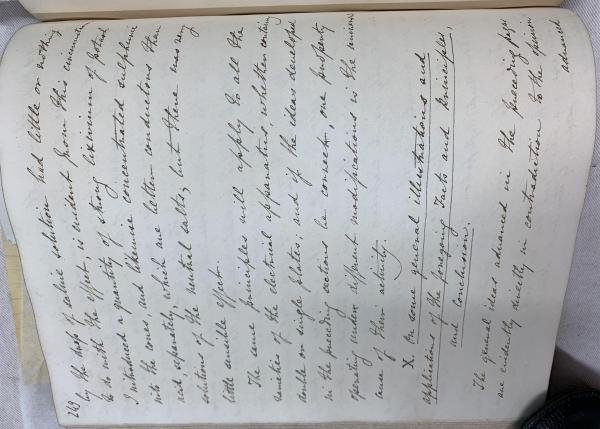 249
by the drops of saline solution had little or nothing
to do with the effect, is evident from this circumstance
I introduced a quantity of strong lixivium of potash
into the cones, and likewise concentrated sulphuric
acid separately, which are better conductors than
solutions of the neutral salts; but there was very
little sensible effect.
The same principles will apply to all the
varieties of the electrical apparatus, whether containing
double or single plates, and if the ideas developed
in the preceding sections be correct, one property
operating under different modifications is the universal
cause of their activity.
X. On some general illustrations and
applications of the foregoing Facts and Principles,
and conclusions.
The general ideas advanced in the preceding pages
are evidently directly in contradiction to the opinion
advanced